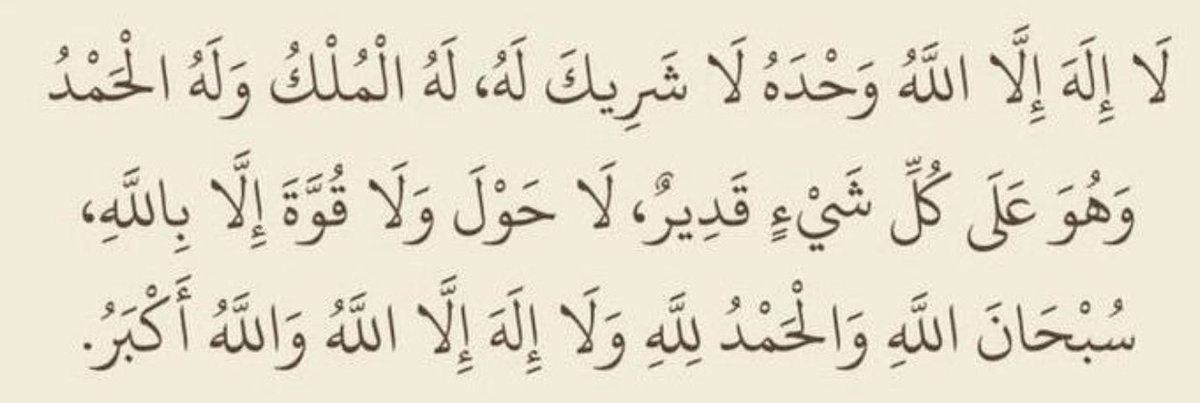 لَا إِلَهَ إِلَّا اللَّهُ وَحْدَهُ لَا شَرِيكَ لَهُ، لَهُ الْمُلْكُ وَلَهُ الْحَمْدُ
وَهُوَ عَلَى كُلِّ شَيْءٍ قَدِيرٌ، لَا حَوْلَ وَلَا قُوَّةَ إِلَّا بِاللَّهِ،
سُبْحَانَ اللَّهِ وَالْحَمْدُ لِلَّهِ وَلَا إِلَهَ إِلَّا اللَّهُ وَاللَّهُ أَكْبَرُ.